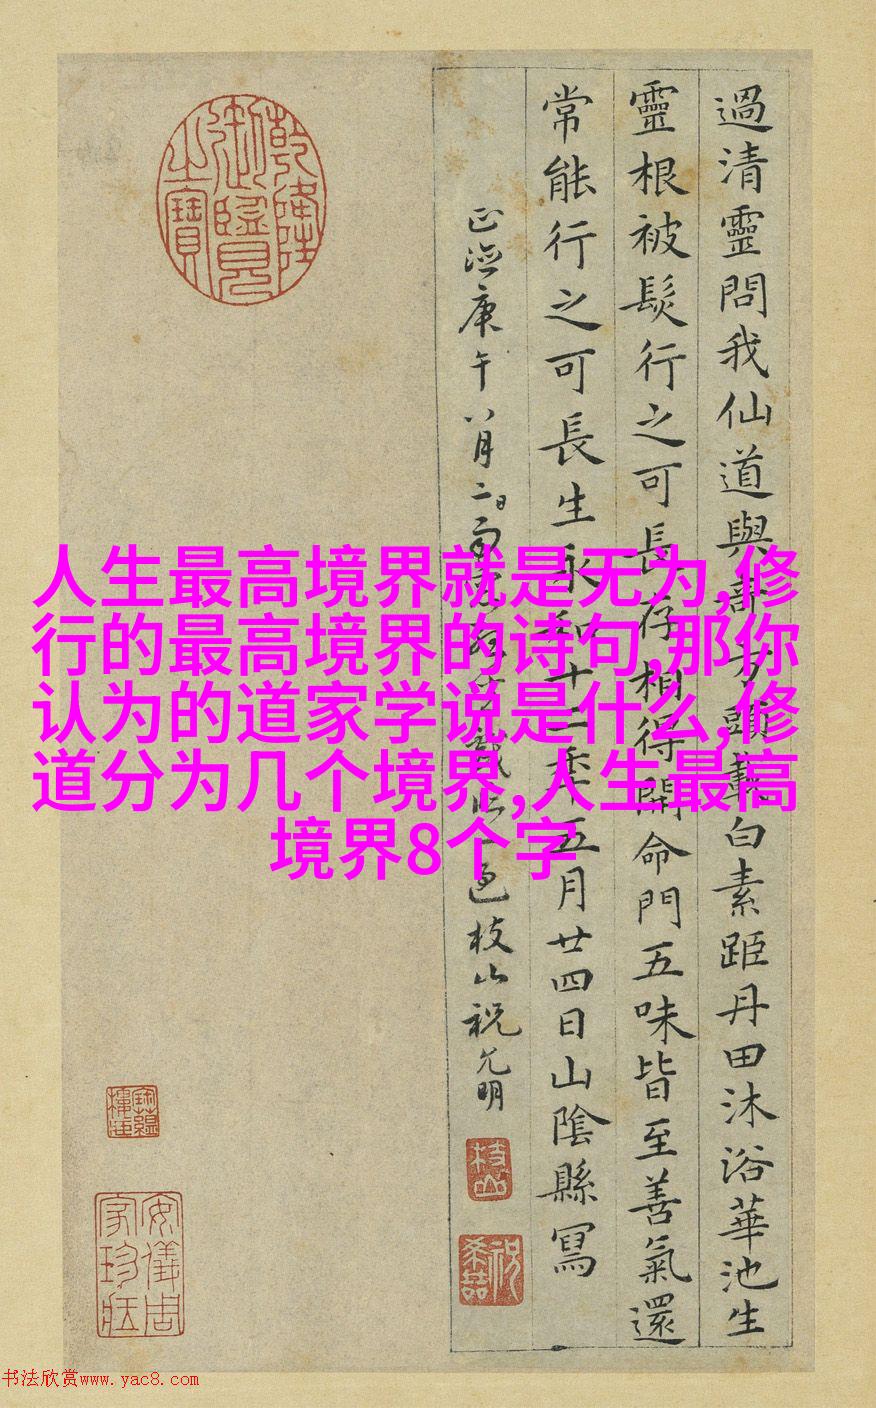 過清靈問我仙道與奇方頭載白素距丹田沐浴華池生
靈根被髮行之可長存相得開命門五味皆至善氣還
常能行之可長生永和十二年五月廿四日山陰縣寫
正德庚午八月二日
枝山祝允明
乾隆御覽之寶
枝山
安儀周家珍藏
人生最高境界就是无为,修
行的最高境界的诗句,那你
认为的道家学说是什么,修
道分为几个境界,人生最高
境界8个字
书法欣赏www.yac8.com